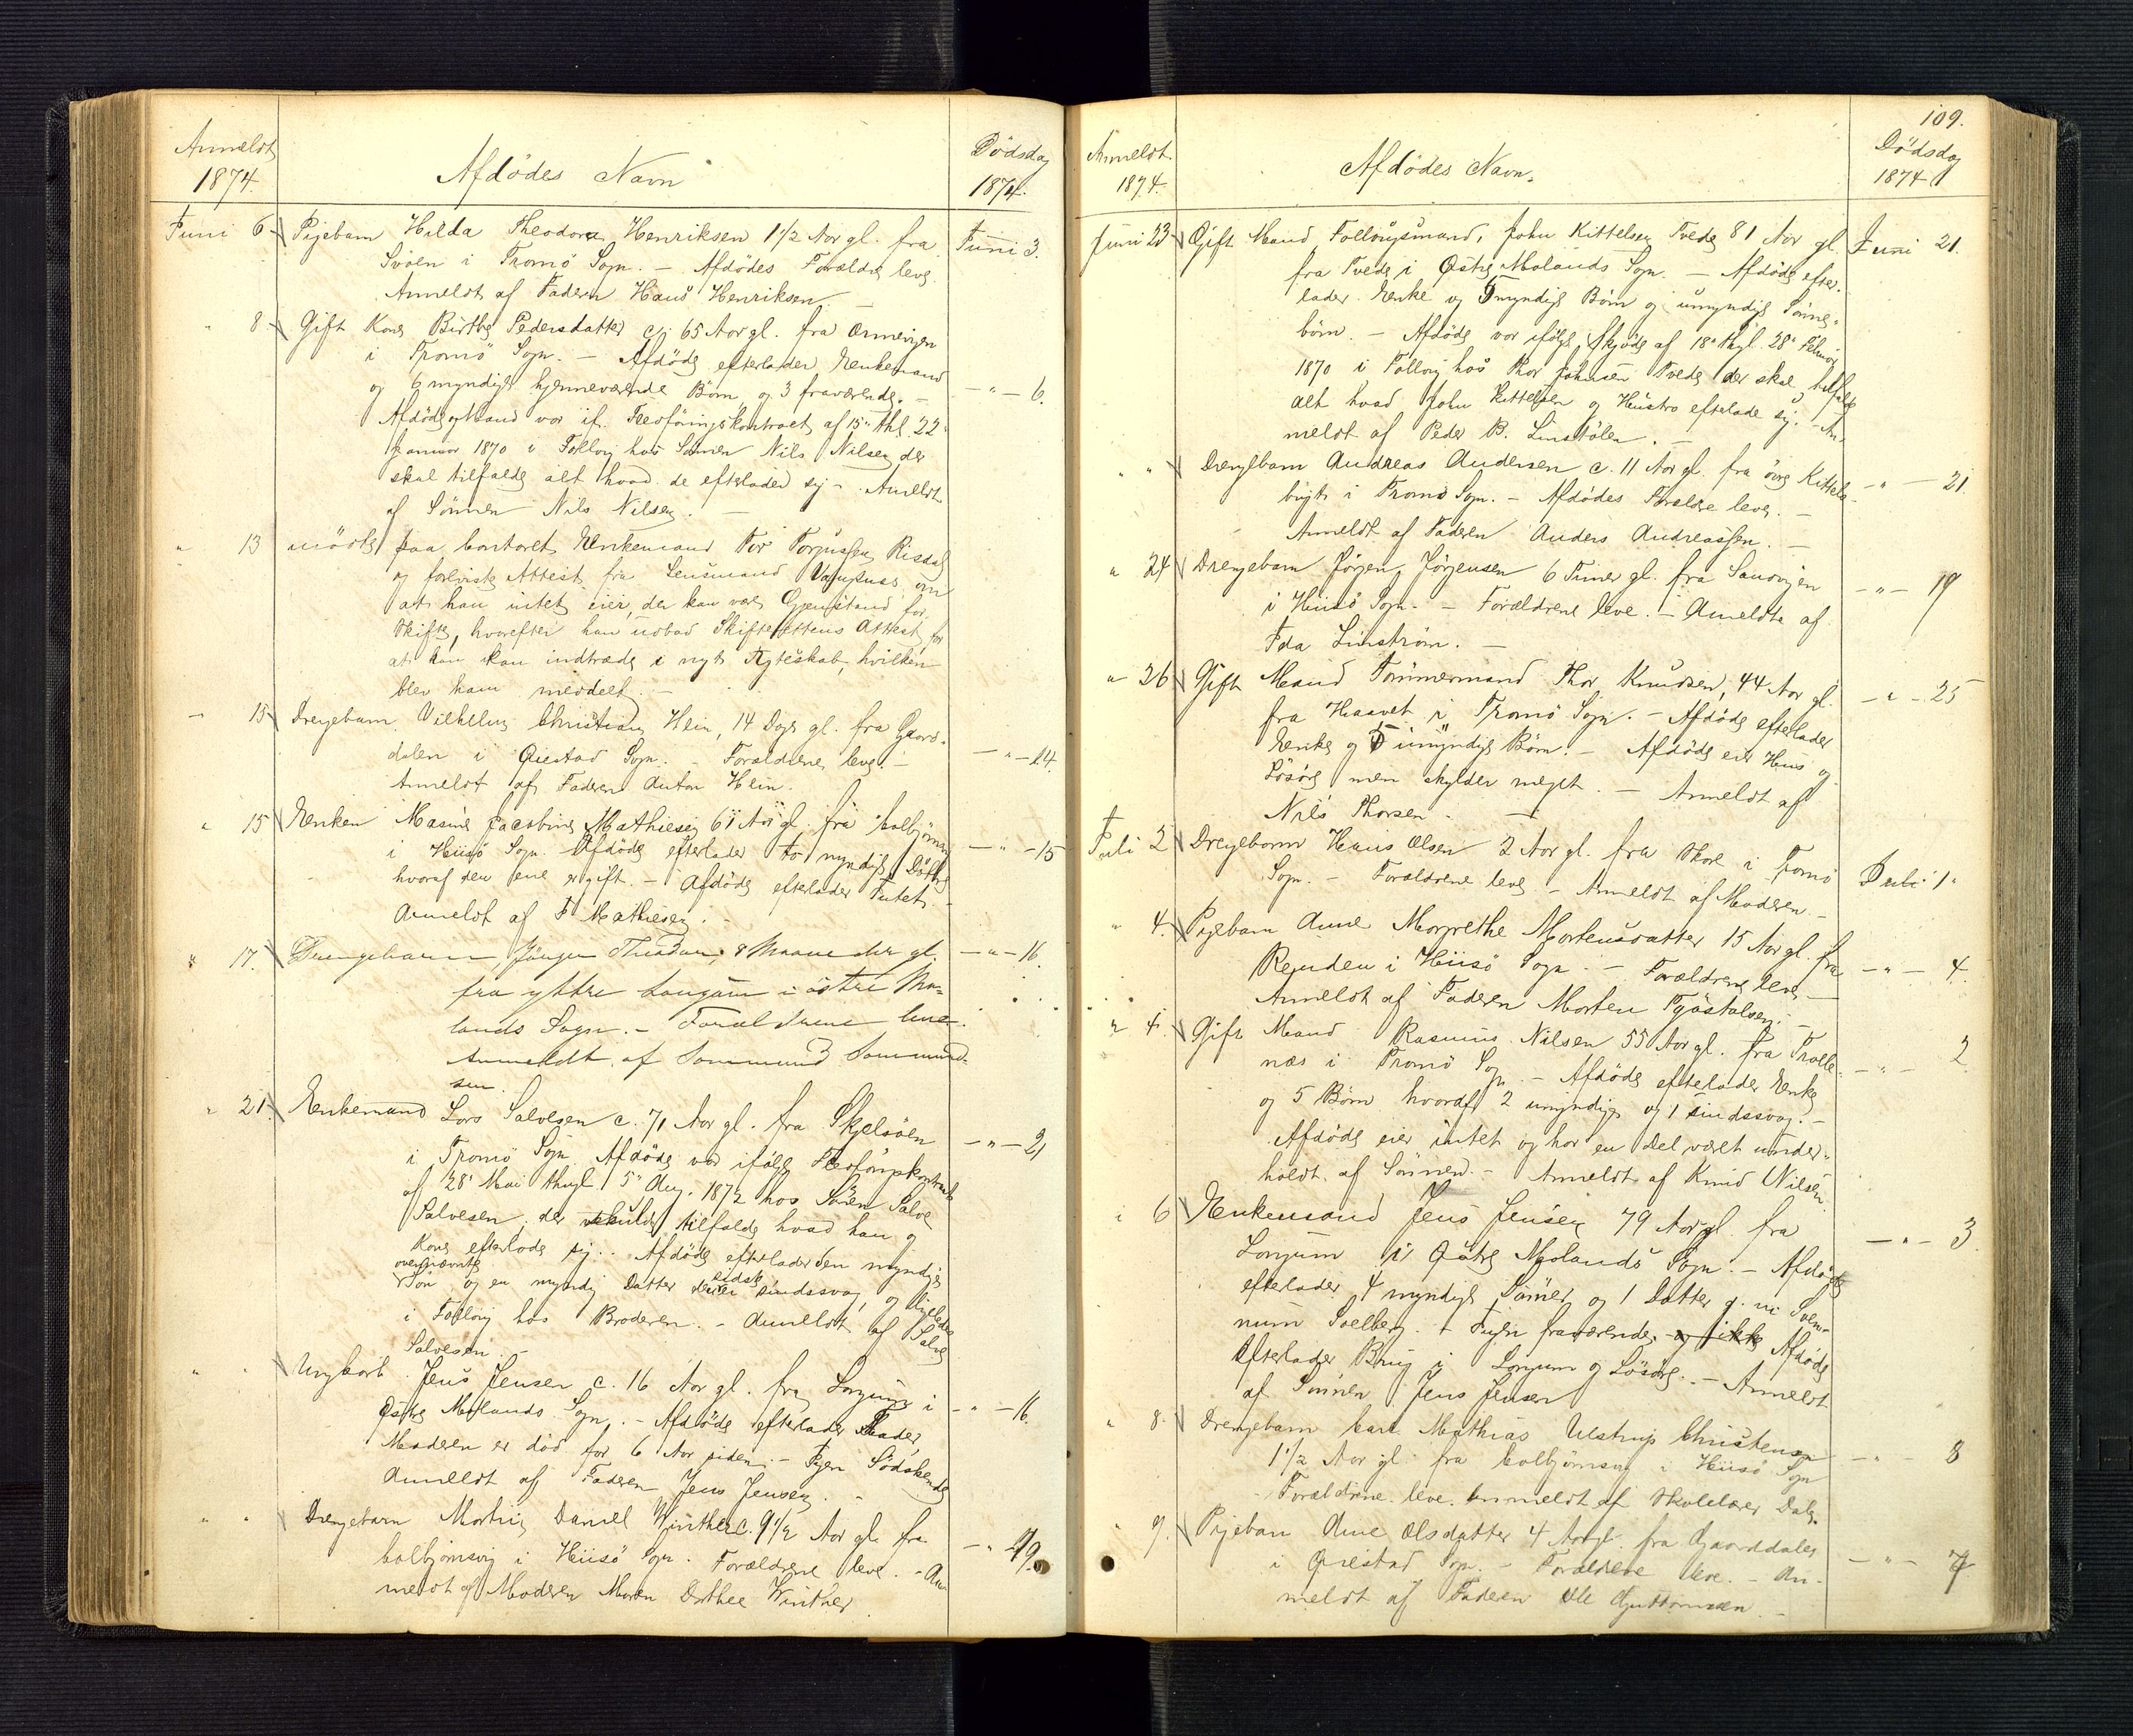 Anmeldt 1874 Afdödes Navn Dödsdag 1874
Juni 6 Pigebarn Hilda Theodora Henriksen 1 1/2 Aar gl. fra Juni 3.
i Tromö Sogn. – Afdödes Forældre leve
Anmeldt af Faderen Hans Henriksen. –
" 8 Gift Kone Birthe Pedersdatter c. 65 Aar gl. fra
i Tromö Sogn. – Afdöde efterlader Enkemand
og 6 myndige hjemmeværende Börn og 3 fraværende. – – " – 6.
Afdöde og Mand var if. Flodföringskontract af 15" thl. 22"
Januar 1870 i Follog hos Sönnen Nils Nilsen der
skal tilfalde alt hvad de efterlader sig – Anmeldt
af Sönnen Nils Nilsen. –
" 13 mödte paa Contoret Enkemand Tor Torjussen Risdal
og foreviste Attest fra Lensmand om
at han intet eier, der kan være Gjenstand for
Skifte, hvorefter han udbad Skifterettens Attest for
at han kan indtræde i nyt Ægteskab, hvilken
blev ham meddelt. –
– 15 Drengebarn Vilhelm Christian Hein, 14 Dage gl. fra Gaard-
dalen i Öiestad Sogn. – Forældrene leve. – – " – 14.
Anmeldt af Faderen Anton Hein.
" 15 Enken Masine Jacobine Mathiesen 61 Aar gl. fra Kolbjörns
i Hiisö Sogn. Afdöde efterlader to myndige Dötre – " – 15
hvoraf den ene er gift. – Afdöde efterlader Intet. –
Anmeldt af F Mathiesen. –
" 17. Drengebarn, Jörgen 8 Maaneder gl. – " – 16.
fra yttre Langum i östre Mo-
lands Sogn. – Forældrene leve.
Anmeldt af Sammund Sammund-
sen.
" 21 Enkemand Lars Salvesen c. 71 Aar gl. fra Skjelsöen – " – 21
i Tromö Sogn. Afdöde var ifölge Flodföringskontrakt
af 28' Mai thgl. 5" Aug. 1872 hos Sönnen Salve
Salvesen, der skulde tilfalde hvad han og
Kone efterlode sig. Afdöde efterlader den myndige
overnævnte
Sön og en myndig Datter der er sindssvag, og ligeledes
i Follog hos Broderen. – Anmeldt af Salve
Salvesen. –
" " Ungkarl Jens Jensen c. 16 Aar gl. fra Longum i – " – 16.
Östre Molands Sogn. – Afdöde efterlader Fader,
Moderen er död for 6 Aar siden. – Ingen Södskende
Anmeldt af Faderen Jens Jensen. –
" " Drengebarn Martin Daniel Winther c. 9 1/2 Aar gl. fra
Kolbjörnsvig i Hiisö Sogn. Forældrene leve. – An- – " 19.
meldt af Moderen Maren Dorthee Winther
109.
Anmeldt 1874. Afdödes Navn. Dödsdag 1874
Juni 23 Gift Mand Follougsmand, John Kittelsen Tvede 81 Aar gl. Juni 21.
fra Tvede i Östre Molands Sogn. – Afdöde efter-
lader Enke og 5 myndige Börn og umyndige Sönne-
börn. – Afdöde var ifölge Skjöde af 18" thgl. 28" Februar
1870 i Follog hos Thor Johnsen Tvede der skal tilfalde
alt hvad John Kittelsen og Hustro efterlade sig. – An-
meldt af Peder B. Linstölen. –
" " Drengebarn Andreas Andersen c. 11 Aar gl. fra övre Kittels- – " – 21.
bugt i Tromö Sogn. – Afdödes Forældre leve. –
Anmeldt af Faderen Anders Andreassen. –
" 24 Drengebarn Jörgen Jörgensen 6 Timer gl. fra Sandvigen – " – 19
i Hiisö Sogn. – Forældrene leve. – Anmeldt af
Ida Linström. –
" 26 Gift Mand Tömmermand Thor Knudsen, 44 Aar gl. – " – 25
fra Haavet i Tromö Sogn. – Afdöde efterlader
Enke og 5 umyndige Börn. – Afdöde eier Huus og
Lösöre men skylder meget. – Anmeldt af
Nils Thorsen. –
Juli 2 Drengebarn Hans Olsen 2 Aar gl. fra Skare i Tromö Juli 1.
Sogn. – Forældrene leve. – Anmeldt af Moderen. –
" 4. Pigebarn Anne Margrethe Mortensdatter 15 Aar gl. fra – " – 4.
i Hiisö Sogn. – Forældrene leve. –
Anmeldt af Faderen Morten Tjöstolsen. –
" 4. Gift Mand Rasmus Nilsen 55 Aar gl. fra Trolle- – " – 2
næs i Tromö Sogn. – Afdöde efterlader Enke
og 5 Börn hvoraf 2 umyndige og 1 sindssvag. –
Afdöde eier intet og har en Del været under-
holdt af Sönnen. – Anmeldt af Knud Nilsen.
" 6 Enkemand Jens Jensen 79 Aar gl. fra – " – 3.
Longum i Östre Molands Sogn. – Afdöde
efterlader 4 myndige Sönner og 1 Datter g. m.
Solberg. – Ingen fraværende. – og ikke Afdöde
Efterlader Brug i Longum og Lösöre. – Anmeldt
af Sönnen Jens Jensen
" 8. Drengebarn Carl Mathias Ulstrup Christensen
1 1/2 Aar gl. fra Kolbjörnsvig i Hiisö Sogn – " – 8
Forældrene leve. Anmeldt af Skolelærer Dale.
" 9. Pigebarn Ane Olsdatter 4 Aar gl. fra Gaarddalen
i Öiestad Sogn. – Forældrene leve. – An- – " – 7
meldt af Faderen Ole Guttormsen. –